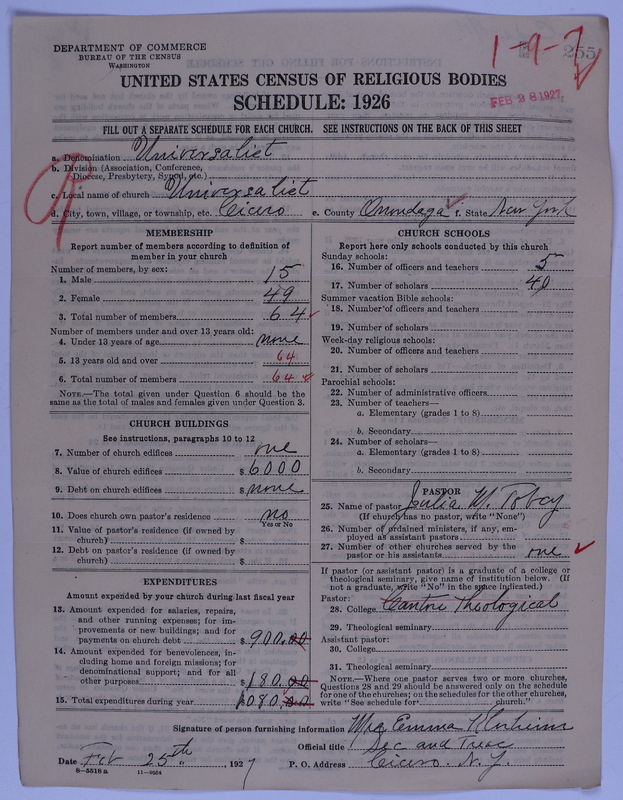 DEPARTMENT OF COMMERCE
BUREAU OF THE CENSUS
WASHINGTON
1-9-2
255
UNITED STATES CENSUS OF RELIGIOUS BODIES
SCHEDULE: 1926
FEB 28 1927
FILL OUT A SEPARATE SCHEDULE FOR EACH CHURCH. SEE INSTRUCTIONS ON THE BACK OF THIS SHEET
a. Denomination Universalist
b. Division (Association, Conference, Diocese, Presbytery, Synod, etc.)
c. Local name of church Universalist
d. City, town, village, or township, etc. Cicero e. County Onondaga f. State New York
MEMBERSHIP
Report number of members according to definition of
member in your church
Number of members, by sex:
1. Male 15
2. Female 49
3. Total number of members 64
Number of members under and over 13 years old:
4. Under 13 years of age none
5. 13 years old and over 64
6. Total number of members 64
NOTE.—The total given under Question 6 should be
same as the total of males and females given under Question 3.
CHURCH BUILDINGS
See instructions, paragraphs 10 to 12
7. Number of church edifices one
8. Value of church edifices $ 6000
9. Debt on church edifices $ none
10. Does church own pastor's residence no
Yes or No
11. Value of pastor's residence (if owned by
church) $
12. Debt on pastor's residence (if owned by
church) $
EXPENDITURES
Amount expended by your church during last fiscal year
13. Amount expended for salaries, repairs,
and other running expenses; for im-
provements or new buildings; and for
payments on church debt $ 900.00
14. Amount expended for benevolences, in-
cluding home and foreign missions; for
denominational support; and for all
other purposes $ 180.00
15. Total expenditures during year $1080.00
CHURCH SCHOOLS
Report here only schools conducted by this church
Sunday schools:
16. Number of officers and teachers 5
17. Number of scholars 40
Summer vacation Bible schools:
18. Number of officers and teachers
19. Number of scholars
Week-day religious schools:
20. Number of officers and teachers
21. Number of scholars
Parochial schools:
22. Number of administrative officers
23. Number of teachers—
a. Elementary (grades 1 to 8)
b. Secondary
24. Number of scholars—
a. Elementary (grades 1 to 8)
b. Secondary
PASTOR
25. Name of pastor Julia M. Tobey
(If church has no pastor, write "None")
26. Number of ordained ministers, if any, em-
ployed as assistant pastors
27. Number of other churches served by the
pastor or his assistants one
If pastor (or assistant pastor) is a graduate of a college or
theological seminary, give name of institution below. (If
not a graduate, write "No" in the space indicated.)
Pastor:
28. College Canton Theological
29. Theological seminary
Assistant pastor:
30. College
31. Theological seminary
NOTE.—Where one pastor serves two or more churches,
Questions 28 and 29 should be answered only on the schedule
for one of the churches; on the schedules for the other churches,
write "See schedule for church."
Signature of person furnishing information Mrs Emma
Official title Sec and Treas
Date Feb 25th, 1927 P. O. Address Cicero. N.Y.
8-5518 a 11-9024